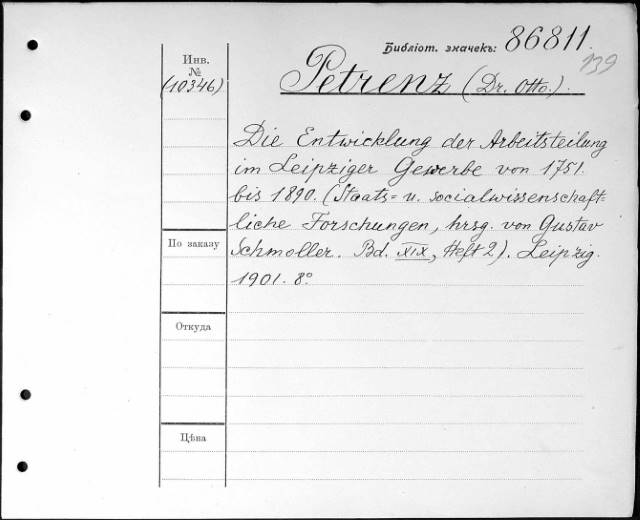 Библіот. значекъ: 86811.
139
Инв.
№
(10346)
Petrenz (Dr. Otto.).
Die Entwicklung der Arbeitsteilung
im Leipziger Gewerbe von 1751.
bis 1890. (Staats= u. socialwissenschaft=
liche Forschungen, hrsg. von Gustav
Schmoller. Bd. XIX, Heft 2). Leipzig.
1901. 8°
По заказу
Откуда
Цѣна